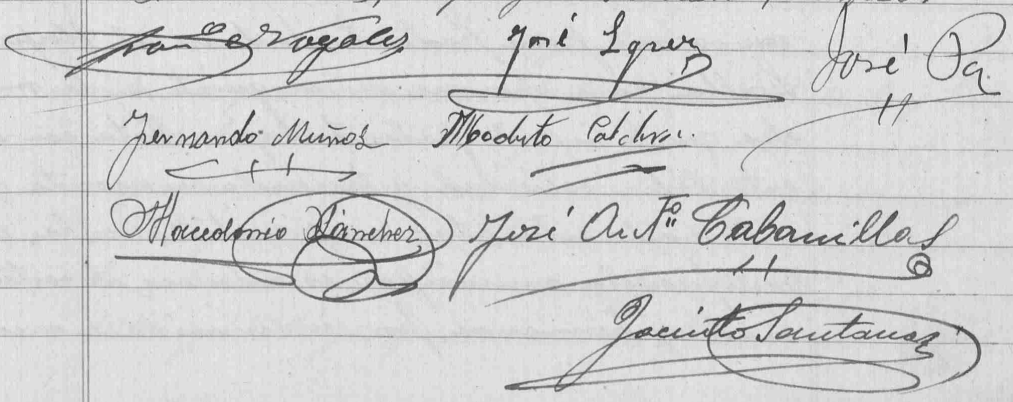 Fran.co Nogales José López José Pa
Fernando Muñoz Modesto
Macedonio Sánchez José Ant.º Cabanillas
Jacinto Santana